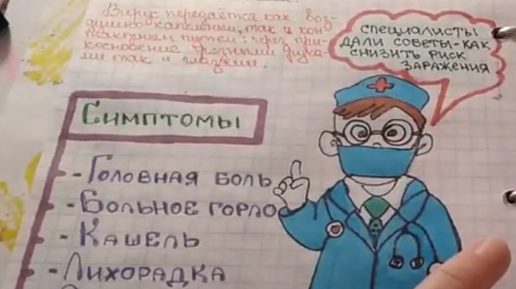 Вирус передаётся как воз-
душно-капельным, так и кон-
тактным путём: через при-
косновение грязными рука-
ми так и глазами.
СПЕЦИАЛИСТЫ
ДАЛИ СОВЕТЫ-КАК
СНИЗИТЬ РИСК
ЗАРАЖЕНИЯ
СИМПТОМЫ
-ГОЛОВНАЯ БОЛЬ
-БОЛЬНОЕ ГОРЛО
-КАШЕЛЬ
-ЛИХОРАДКА